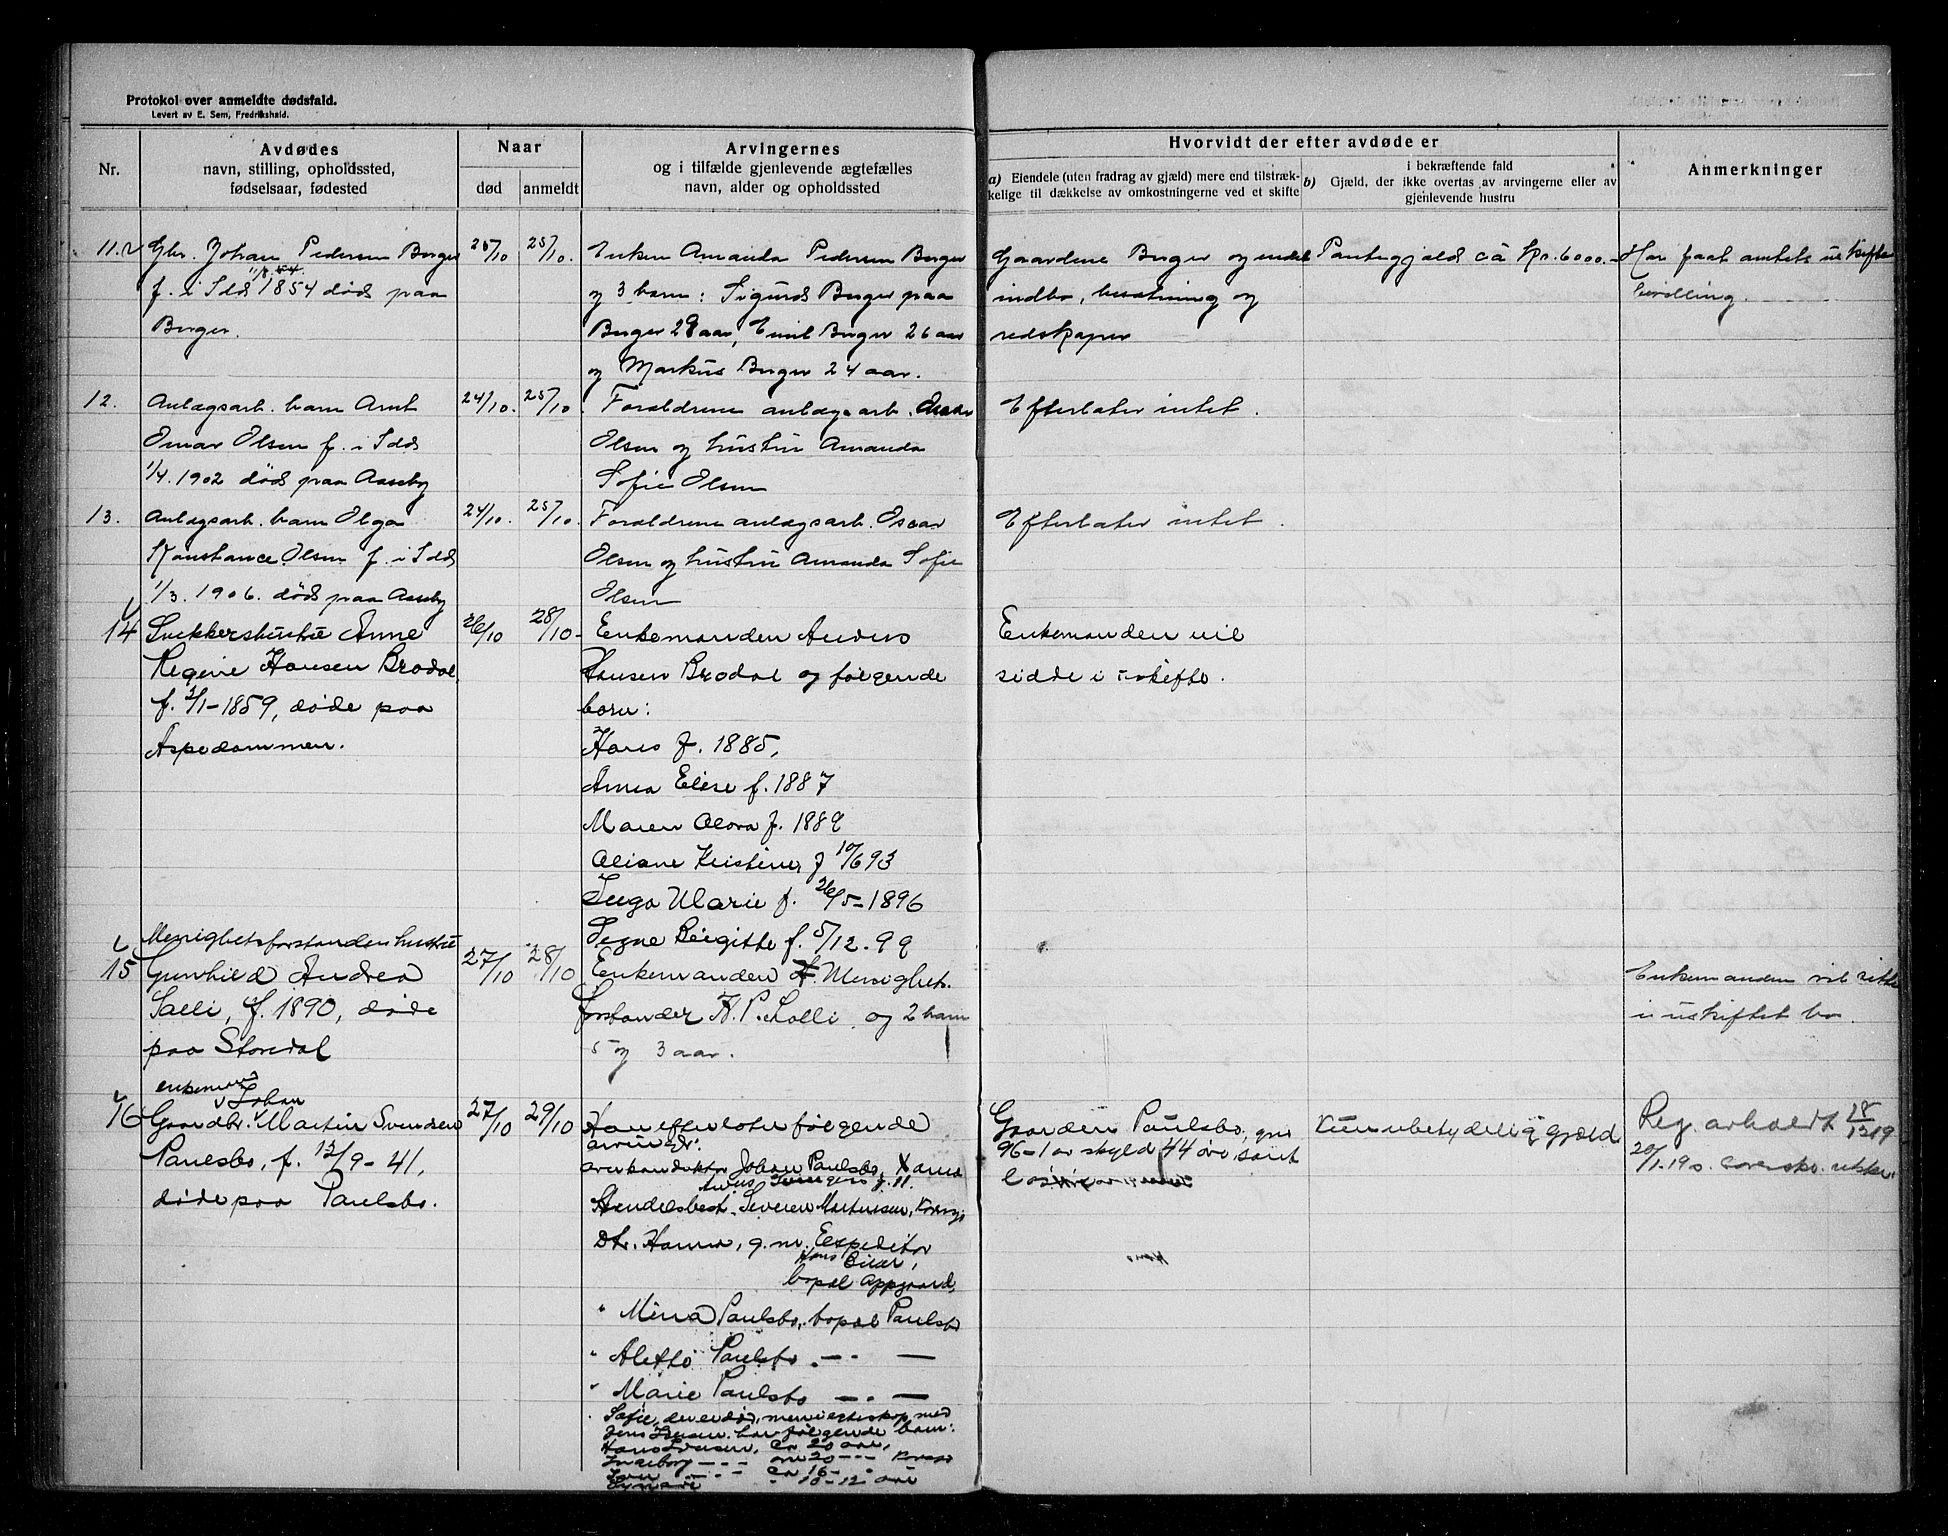 Protokol over anmeldte dødsfald.
Levert av E. Sem, Fredrikshald.
Nr.
Avdødes
navn, stilling, opholdssted,
fødselsaar, fødested
Naar
død
anmeldt
Arvingernes
og i tilfælde gjenlevende ægtefælles
navn, alder og opholdssted
Hvorvidt der efter avdøde er
a) Eiendele (uten fradrag av gjæld) mere end tilstræk-
kelige til dækkelse av omkostningerne ved et skifte
i bekræftende fald
b) Gjæld, der ikke overtas av arvingerne eller av
gjenlevende hustru
Anmerkninger
11.
Gbr. Johan Pedersen Berger
f. i Idd 1854 død paa
Berger.
25/10
25/10.
Enken Amanda Pedersen Berger
og 3 barn: Sigurd Berger paa
Berger 29 aar, Emil Berger 26 aar
og Markus Berger 24 aar.
Gaardene Berger og endel
indbo, besætning og
redskaper
Pantegjæld ca Kr. 6000.-
Har faat amtets uskifte
bevilling.
12.
Anlægsarb. barn Arnt
Omar Olsen f. i Idd
1/4. 1902 død paa Aaseby
24/10.
25/10.
Forældrene anlægsarb. Oscar
Olsen og hustru Amanda
Sofie Olsen
Efterlater intet.
13.
Anlægsarb. barn Olga
Konstance Olsen f. i Idd
1/3. 1906. død paa Aaseby
24/10.
25/10.
Forældrene anlægsarb. Oscar
Olsen og hustru Amanda Sofie
Olsen
Efterlater intet.
14
Snekkershustru Anne
Regine Hansen Brødal,
f. 2/1-1859, døde paa
Aspedammen.
26/10
28/10-
Enkemanden Anders
Hansen Brødal og følgende
børn:
Hans f. 1885,
Anna Elise f. 1887
Maren f. 1889
Kristine, f 10/6 93
Inga Marie f. 26/5-1896
Signe Birgitte f. 5/12. 99
Enkemanden vil
sidde i uskifte.
15
Menighetsforstanderhustru
Gunhild Andrea
Solli, f. 1890, døde
paa Storedal
27/10
28/10
Enkemanden Menighets-
forstander H. P. Solli og 2 barn
5 og 3 aar.
Enkemanden vil sitte
i uskiftet bo.
16
enkemand
Johan
Gaardbr. Martin Svendsen
Paulsbo, f. 12/9-41,
døde paa Paulsbo.
27/10
29/10
Han efterlater følgende
arvinger:
Johan Paulsbo,
Handelsbest. Severin Martinsen, Kornsjø
Dtr. Hanna, g. m. Expeditør
Hans
bopæl
" Mina Paulsbo, bopæl Paulsbo
" Alette Paulsbo -"- —
" Marie Paulsbo -"- —
" Sofie, der er død, men i egteskap med
Jens Iversen har følgende barn:
Hans Iversen, ca 20 aar,
Ingeborg
ca 16
10-12 aar
Gaarden Paulsbo, gnr
96-1 av skyld 44 øre, samt
løsøre
Kun ubetydelig gjæld
Reg. avholdt 18/12 19